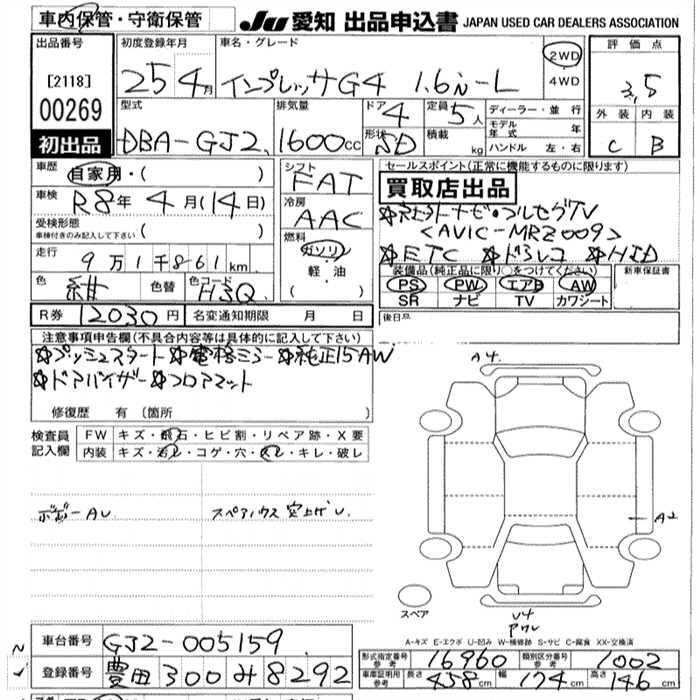 車内保管・守衛保管
JU 愛知 出品申込書 JAPAN USED CAR DEALERS ASSOCIATION
出品番号
[2118]
00269
初出品
初度登録年月
25 4月
車名・グレード
インプレッサG4 1.6i-L
2WD
4WD
評価点
3.5
外装 内装
C B
型式
DBA-GJ2
排気量
1600cc
ドア
4
形状
SD
定員
5人
積載 kg
ディーラー・並行
モデル年式 年
ハンドル 左・右
車歴
自家用・( )
車検
R8年 4月(14日)
受検形態
車検付きのみ記入して下さい ( )
走行
9万1千861km
色
紺
色替
色コード
H3Q
シフト
FAT
冷房
AAC
燃料
ガソリン
軽・油
( )
セールスポイント(正常に機能するものに限ります)
買取店出品
☆社外ナビ・フルセグTV
<AVIC-MRZ009>
☆ETC ☆ドラレコ ☆HID
装備品(純正品に限り○をつけてください)
PS PW エアB AW
SR ナビ TV カワシート
新車保証書
後日品
R券 12030円
名変通知期限 月 日
注意事項申告欄(不具合内容等は具体的に記入して下さい)
☆プッシュスタート ☆電格ミラー ☆純正15AW
☆ドアバイザー ☆フロアマット
修復歴 有(箇所 )
検査員記入欄
FW キズ・飛石・ヒビ割・リペア跡・X要
内装 キズ・汚レ・コゲ・穴・スレ・キレ・破レ
A4
A2
ボデーAU
スペアハウス 突上げU
スペア
U4
アワレ
A-キズ E-エクボ U-凹み W-補修跡 S-サビ C-腐食 XX-交換済
車台番号 GJ2-005159
登録番号 豊田 300 み 8292
形式指定番号 参考 16960
類別区分番号 参考 1002
車庫証明用 参考 長さ 458cm 幅 174cm 高さ 146cm